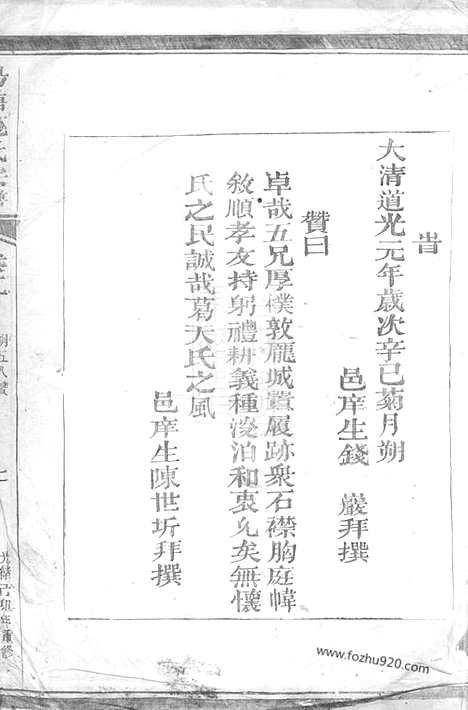 旹
大清道光元年歲次辛巳菊月朔
邑庠生錢 巖拜撰
贊曰
卓哉五兄厚樸敦龐城闉履跡衆石襟胸庭幃
敘順孝友持躬禮耕義種淡泊和衷允矣無懷
氏之民誠哉葛天氏之風
邑庠生陳世圻拜撰
氏宗譜
www.fozhu920.com